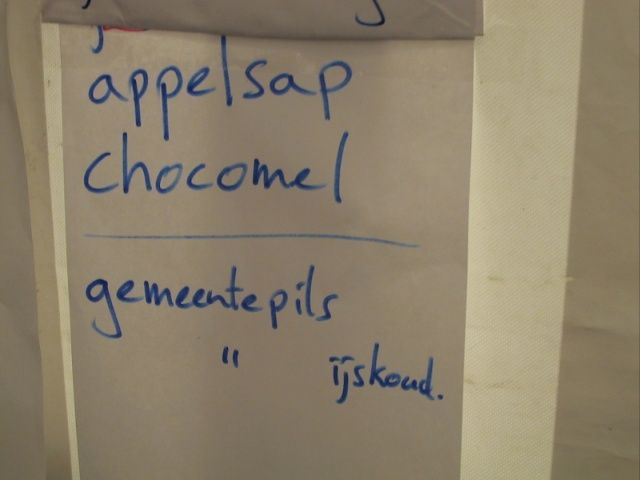 appelsap
chocomel
gemeentepils
" ijskoud.